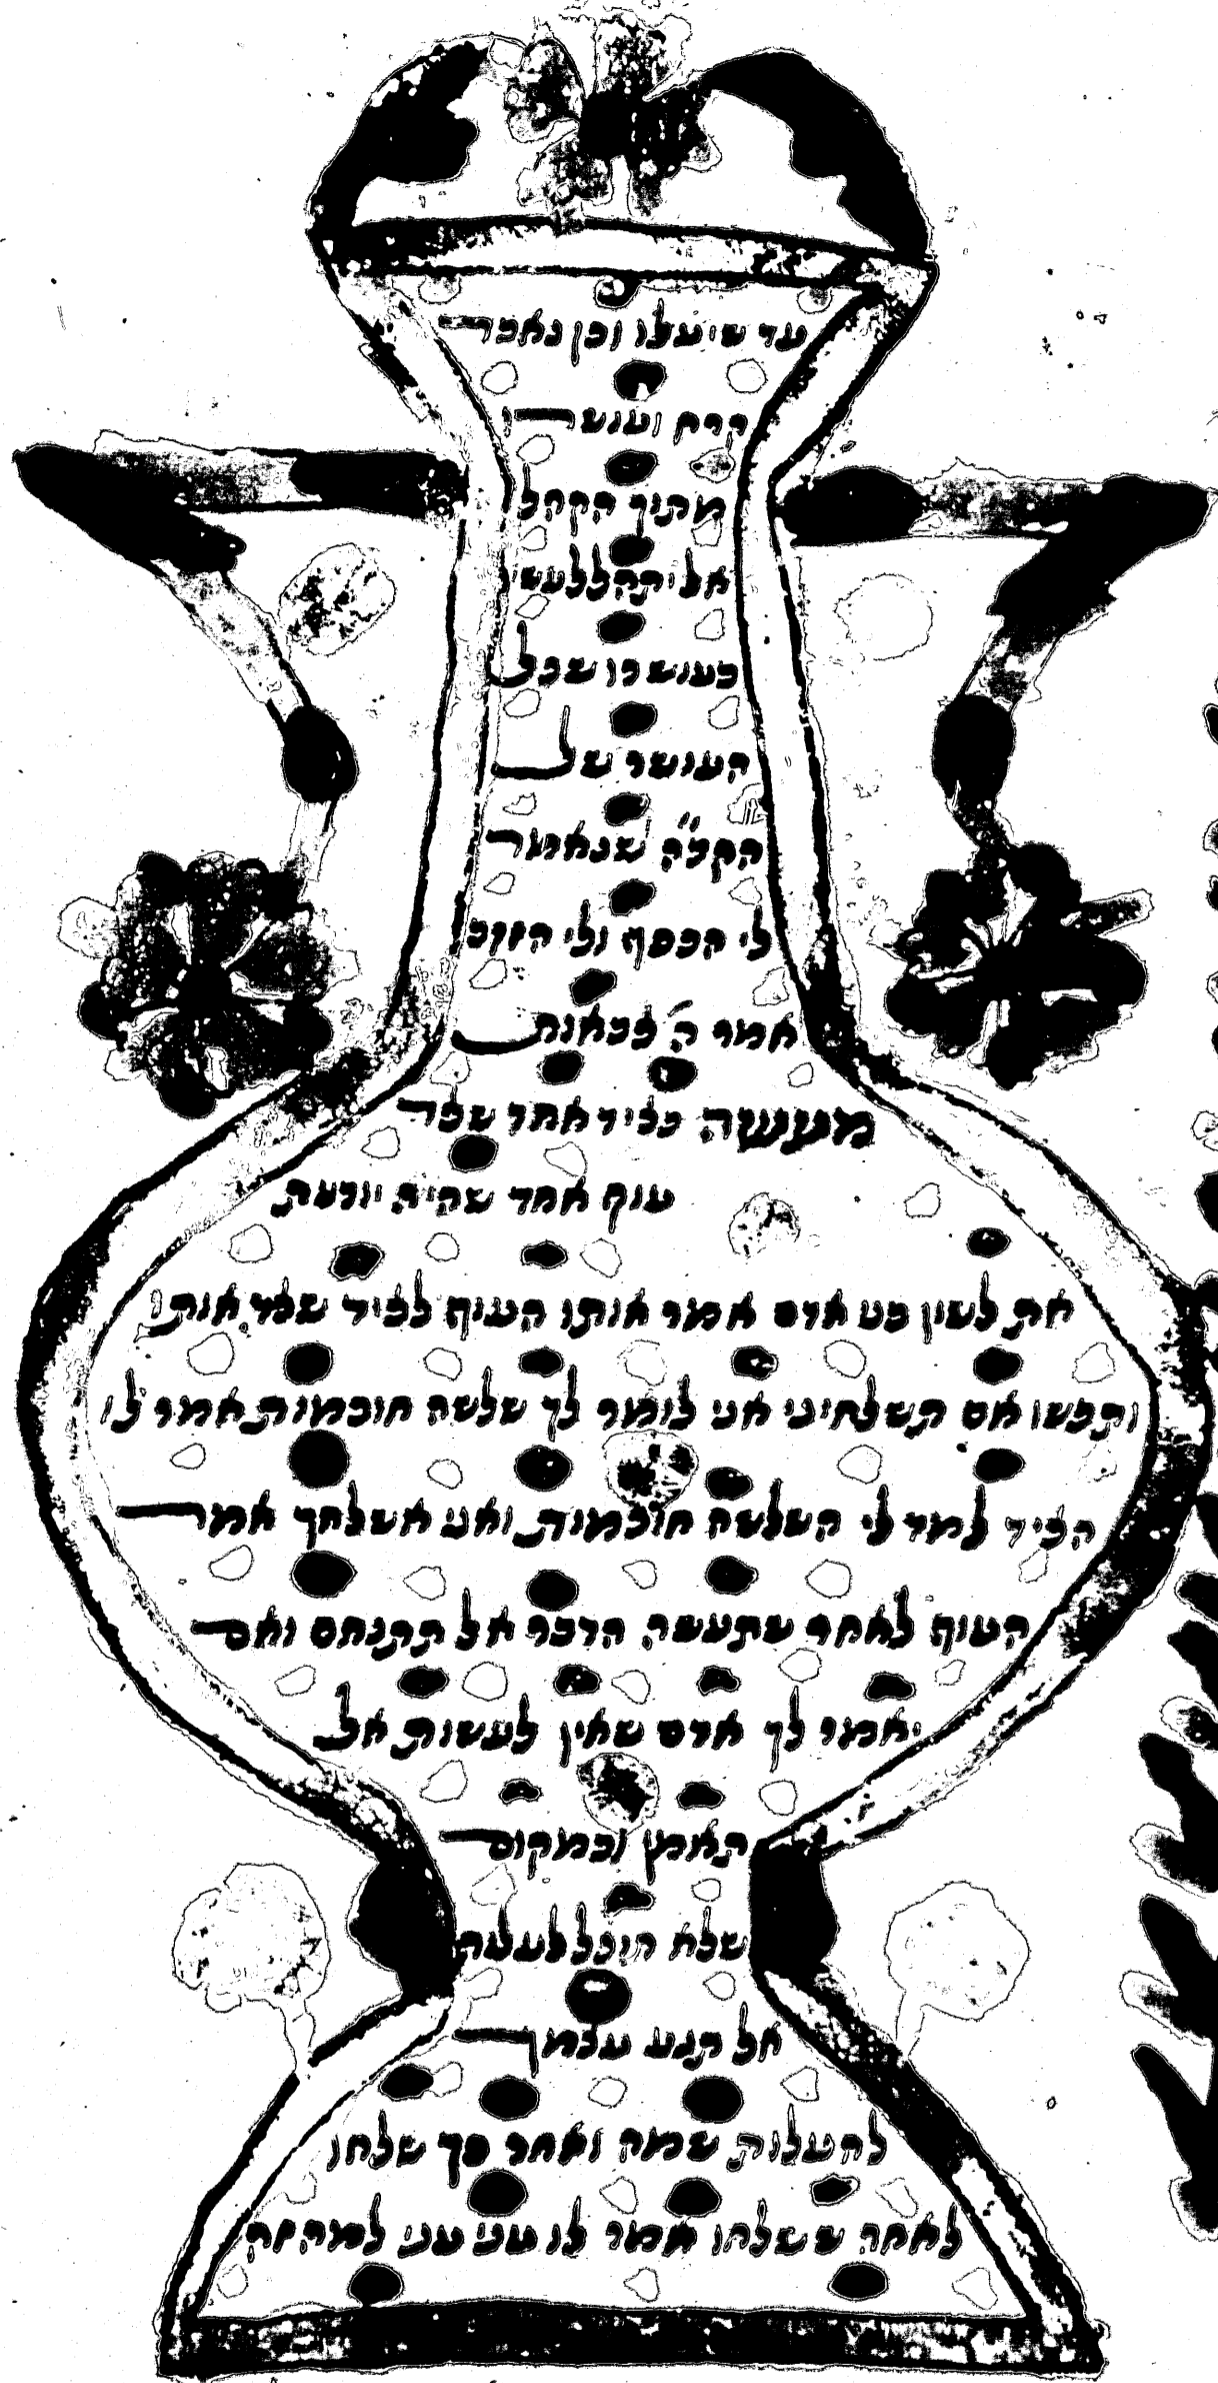 עד שיעלו וכן נאמר
קרח ועושרו
מתוך הקהל
אל יתהלל עשיר
בעושרו שכל
העושר של
הקב״ה שנאמר
לי הכסף ולי הזהב
אמר ה׳ צבאות
מעשה בציד אחד שצד
עוף אחד שהיה יודעת
את לשון בני אדם אמר אותו העוף לציד שצד אותו
ותפשו אם תשלחיני אני לומר לך שלשה חוכמות אמר לו
הציד למד לי השלשה חוכמות ואני אשלחך אמר
העוף לאחר שתעשה הדבר אל תתנחם ואם
יאמר לך אדם שאין לעשות אל
תאמן ובמקום
שלא תוכל לעלות
אל תגע עצמך
להעלות שמה ואחר כך שלחו
לאחר ששלחו אמר לו עני עני למה זה